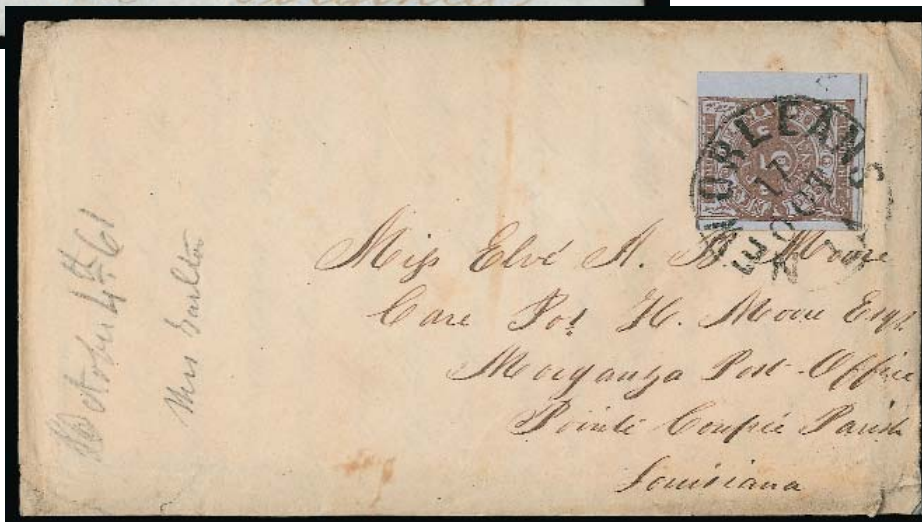 NEW ORLEANS
17
OCT
5
Miss Elvé A. B. Moore
Care Pos H. Moore Esqr.
Morganza Post-Office
Pointe Coupée Parish
Louisiana
October 4th 61
Mrs